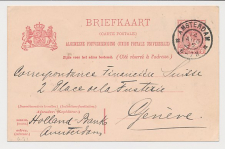 BRIEFKAART
(CARTE POSTALE)
ALGEMEENE POSTVEREENIGING (UNION POSTALE UNIVERSELLE)
Zijde voor het adres bestemd. (Côté réservé à l'adresse.)
AMSTERDAM
Correspondance Financière Suisse
2 Place de la Fusterie
Genève
Holland Bank
Amsterdam